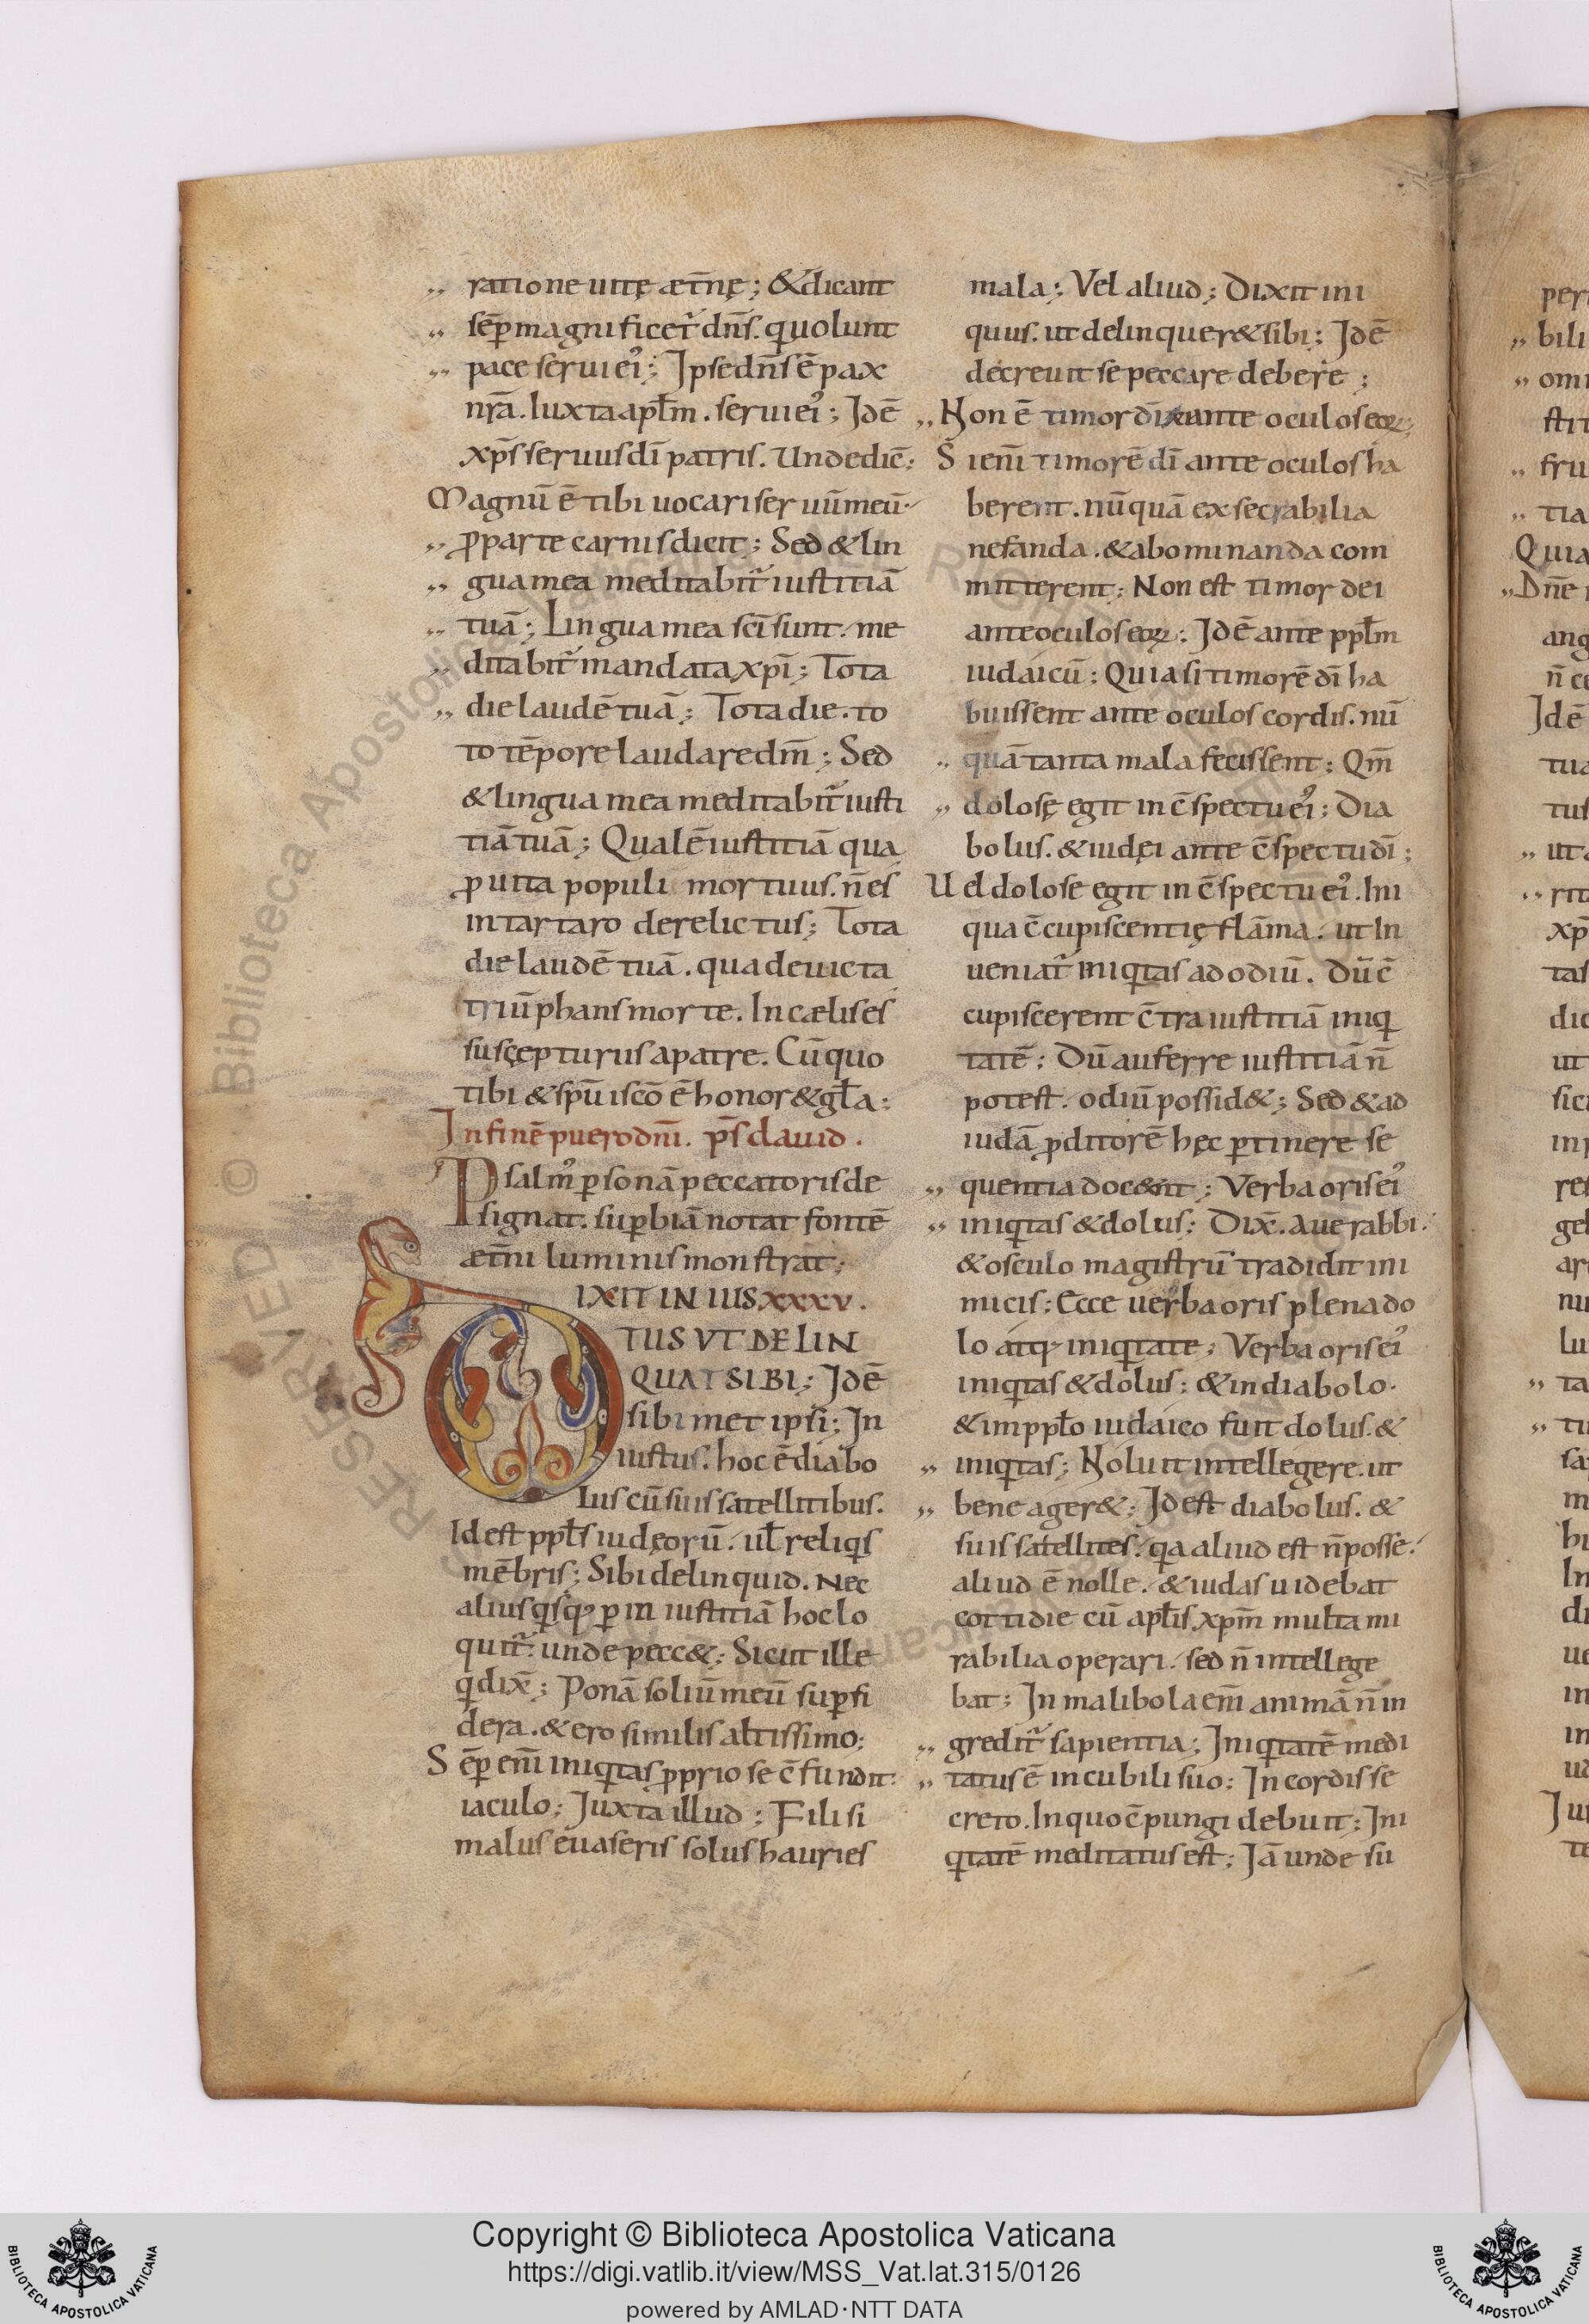 ratione uitę æt̄nę; & dicant
sēp magnificet᷑ dn̄s. qui uolunt
pace serui ei᷒; Ipse dn̄s ē pax
nr̄a. Iuxta apl̄m. serui ei᷒; Idē
xp̄s seruus dī patris. Unde dic̄;
Magnū ē tibi uocari seruū meū.
ꝓ parte carnis dicit; Sed & lin
gua mea meditabit᷑ iustitiā
tuā; Lingua mea sc̄i sunt. me
ditabit᷑ mandata xp̄i; Tota
die laudē tuā; Tota die. to
to tēpore laudare dm̄; Sed
& lingua mea meditabit᷑ iusti
tiā tuā; Qualē iustitiā qua
ꝓ uita populi mortuus. n̄ es
in tartaro derelictus; Tota
die laudē tuā. qua deuicta
triūphans morte. In cælis es
susçepturus a patre. Cū quo
tibi & sp̄u isc̄o ē honor & gl̄a;
In finē puero dn̄i. ps̄ dauid.
Psalm᷒ ꝑsonā peccatoris de
signat. suꝑbiā notat fontē
æt̄ni luminis monstrat;
DIXIT INIUS XXXV.
TUS VT DELIN
QUAT SIBI; Idē
sibimet ipsi; In
iustus. hoc ē diabo
lus cū suis satellitibus.
Id est ppl̄s iudęorū. ul̄ reliqis
mēbris; Sibi delinquid. Nec
alius qisq᷒ ꝑ in iustitiā hoc lo
quit᷑. unde pecc&; Sicut ille
qi dix̄; Ponā soliū meū suꝑ si
dera. & ero similis altissimo;
Sēꝑ enī iniqitas ꝓprio se c̄fundit
iaculo; Juxta illud; Fili si
malus euaseris solus hauries
mala; Vel aliud; Dixit ini
quus. ut delinquer& sibi; Idē
decreuit se peccare debere;
Non ē timor dī ante oculos eoꝝ;
Si enī timorē dī ante oculos ha
berent. nūquā exsecrabilia
nefanda. & abominanda com
mitterent; Non est timor dei
ante oculos eoꝝ; Idē ante ppl̄m
iudaicū; Quia si timorē dī ha
buissent ante oculos cordis. nū
quā tanta mala fecissent; Qm̄
dolosę egit in c̄spectu ei᷒; Dia
bolus. & iudęi ante c̄spectu dī;
Uel dolose egit in c̄spectu ei᷒. Ini
qua c̄cupiscentię flāma. ut In
ueniat᷑ iniqitas ad odiū. Dū c̄
cupiscerent c̄tra iustitiā iniqi
tatē; Dū auferre iustitiā n̄
potest. odiū possid&; Sed & ad
iudā ꝓditorē hęc ꝑtinere se
quentia doc&nt; Verba oris ei᷒
iniqitas & dolus; Dix̄. Aue rabbi.
& osculo magistrū tradidit ini
micis; Ecce uerba oris plena do
lo atq; iniqitate; Verba oris ei᷒
iniqitas & dolus; & in diabolo.
& im ppl̄o iudaico fuit dolus. &
iniqitas; Noluit intellegere. ut
bene ager&; Id est diabolus. &
suis satellites. qia aliud est n̄ posse.
aliud ē nolle. & iudas uidebat
cottidie cū apl̄is. xpm̄ multa mi
rabilia operari. sed n̄ intellege
bat; In maliuola em̄ animā n̄ in
gredit᷑ sapientia; Iniqitatē medi
tatus ē in cubili suo; In cordis se
creto. In quo c̄pungi debuit; Ini
qitatē meditatus est; Iā unde su
Copyright © Biblioteca Apostolica Vaticana
https://digi.vatlib.it/view/MSS_Vat.lat.315/0126
powered by AMLAD·NTT DATA